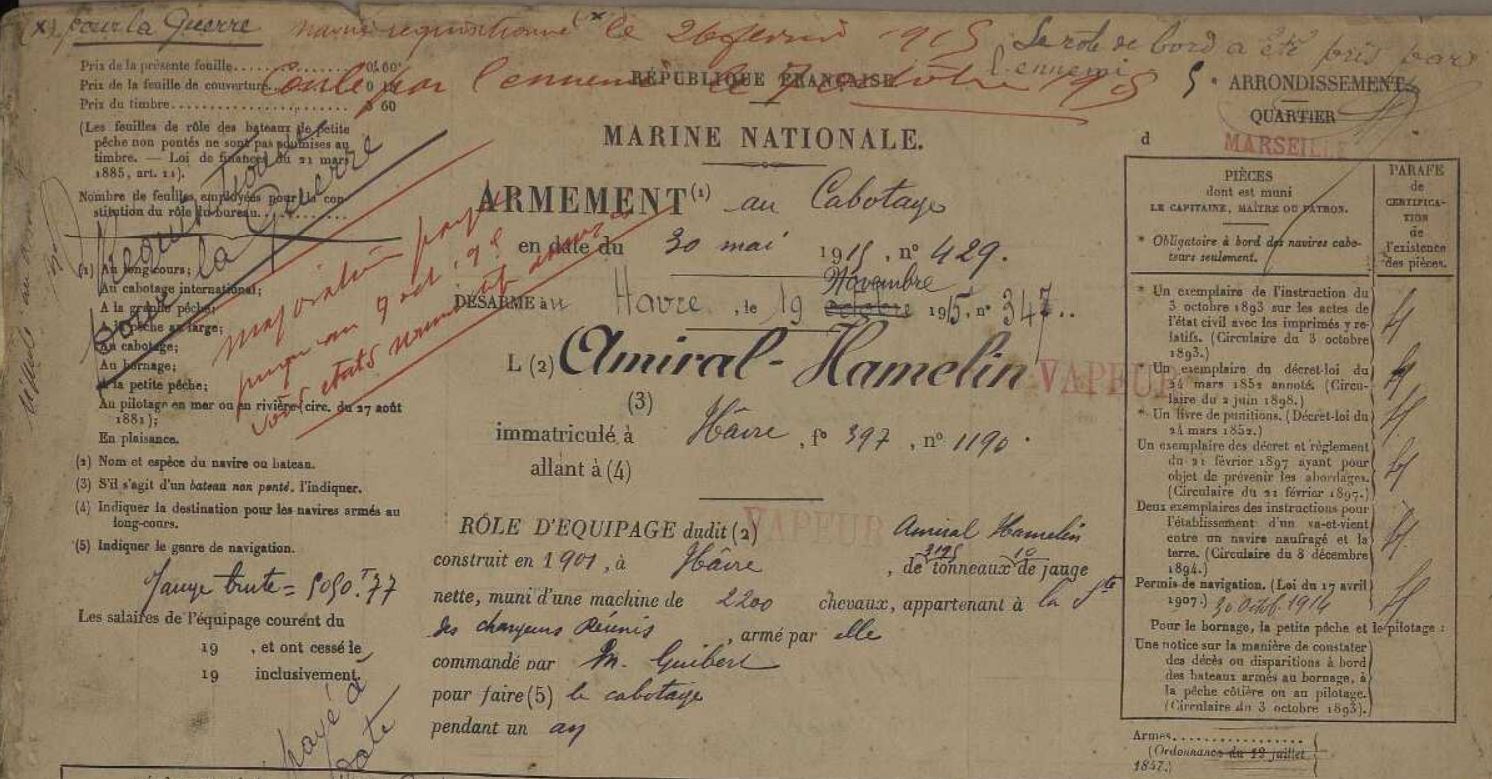 (x) pour la Guerre navire requisitionné (x) le 26 fevrier 1915 Le rôle de bord a été pris par
l'ennemi
Coulé par l'ennemi le 7 octobre 1915
Prix de la présente feuille.................. 0f 60c
Prix de la feuille de couverture.. 0
Prix du timbre...................... 60
(Les feuilles de rôle des bateaux de petite
pêche non pontés ne sont pas soumises au
timbre. — Loi de finances du 21 mars
1885, art. 11).
Nombre de feuilles employées pour la con-
stitution du rôle du bureau..........
Requis
pour la Guerre
(1) Au long cours;
Au cabotage international;
A la grande pêche;
A la pêche au large;
Au cabotage;
Au bornage;
A la petite pêche;
Au pilotage en mer ou en rivière (circ. du 27 août
1881);
En plaisance.
majoration payée
jusqu'au 9 oct.
voir etats
(2) Nom et espèce du navire ou bateau.
(3) S'il s'agit d'un bateau non ponté, l'indiquer.
(4) Indiquer la destination pour les navires armés au
long-cours.
(5) Indiquer le genre de navigation.
Jauge brute = 5050.T77
Les salaires de l'équipage courent du
19 , et ont cessé le
19 inclusivement.
payé à
RÉPUBLIQUE FRANÇAISE
MARINE NATIONALE.
ARMEMENT (1) au Cabotage
en date du 30 mai 1915, n° 429.
DÉSARMÉ au Havre, le 19 octobre Novembre 1915, n° 347..
L (2) Amiral-Hamelin VAPEUR
(3)
immatriculé à Hâvre, f° 397, n° 1190.
allant à (4)
RÔLE D'EQUIPAGE dudit (2) VAPEUR Amiral Hamelin
construit en 1901, à Hâvre, de 3195 tonneaux 10 de jauge
nette, muni d'une machine de 2200 chevaux, appartenant à la Sté
des chargeurs Réunis, armé par elle
commandé par M. Guibert
pour faire (5) le cabotage
pendant un an
5e ARRONDISSEMENT
QUARTIER
d MARSEILLE
PIÈCES
dont est muni
LE CAPITAINE, MAÎTRE OU PATRON.
* Obligatoire à bord des navires cabo-
teurs seulement.
PARAFE
de
CERTIFICA-
TION
de
l'existence
des pièces.
* Un exemplaire de l'instruction du
3 octobre 1893 sur les actes de
l'état civil avec les imprimés y re-
latifs. (Circulaire du 3 octobre
1893.)
Un exemplaire du décret-loi du
24 mars 1852 annoté. (Circu-
laire du 2 juin 1898.)
* Un livre de punitions. (Décret-loi du
24 mars 1852.)
Un exemplaire des décret et règlement
du 21 février 1897 ayant pour
objet de prévenir les abordages.
(Circulaire du 21 février 1897.)
Deux exemplaires des instructions pour
l'établissement d'un va-et-vient
entre un navire naufragé et la
terre. (Circulaire du 8 décembre
1894.)
Permis de navigation. (Loi du 17 avril
1907.) 30 Octob. 1914
Pour le bornage, la petite pêche et le pilotage :
Une notice sur la manière de constater
des décès ou disparitions à bord
des bateaux armés au bornage, à
la pêche côtière ou au pilotage.
(Circulaire du 3 octobre 1893).
Armes................
(Ordonnance du 12 juillet
1847.)